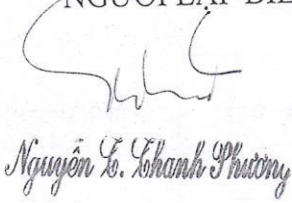 NGƯỜI LẬP BIỂ
Nguyễn L. Khanh Phương